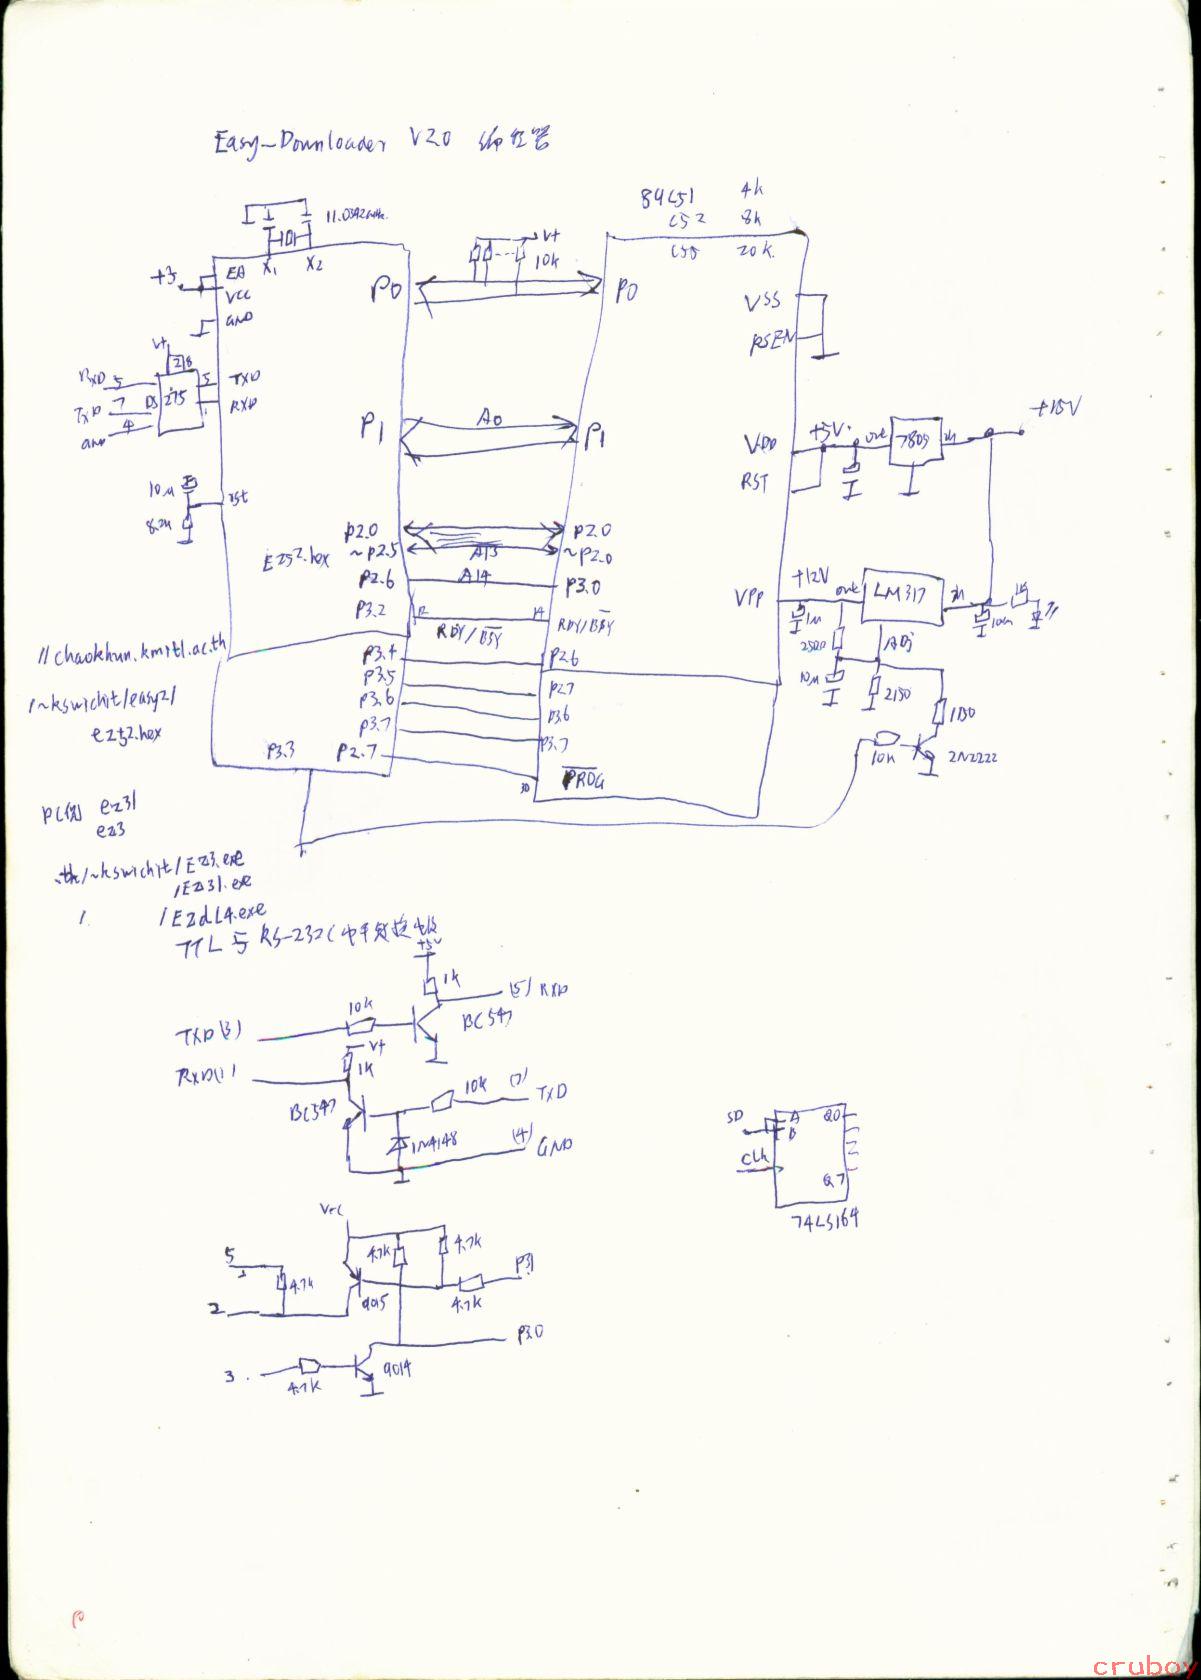 Easy-Downloader V2.0 编程器
89C51 4k
C52 8k
C55 20k
11.0592MHz
V+
10k
+5
EA
VCC
GND
X1
X2
P0
P0
VSS
PSEN
V+
2 8
RXD 5
TXD 7
GND 4
DS 275
5
TXD
RXD
P1
A0
P1
VDD
RST
+5V
out 7805 in
+15V
10u
8.2k
rst
Ez52.hex
P2.0
~P2.5
A13
P2.0
~P2.0
P2.6
A14
P3.0
P3.2
12
14
RDY/BSY
RDY/BSY
VPP
+12V
out LM317 in
1u
ADJ
10u
2150
1150
10k
2N2222
P3.4
P2.6
P3.5
P2.7
P3.6
P3.6
P3.7
P3.7
P3.3
P2.7
30
PROG
//chaokhun.kmitl.ac.th
/~kswichit/easy2/
ez52.hex
PC侧 ez31
ez3
.th/~kswichit/Ez3.exe
/Ez31.exe
/ /EzdL4.exe
TTL与RS-232C电平转换电路
+5V
1k
(5) RXD
10k
TXD(3)
BC547
V+
1k
RXD(1)
BC547
10k
(7)
TXD
1N4148
(4)
GND
SD
A
B
Q0
Clk
Q7
74LS164
Vcc
5
4.7k
4.7k
4.7k
P3.1
9015
4.7k
2
P3.0
3
4.7k
9014
cruboy